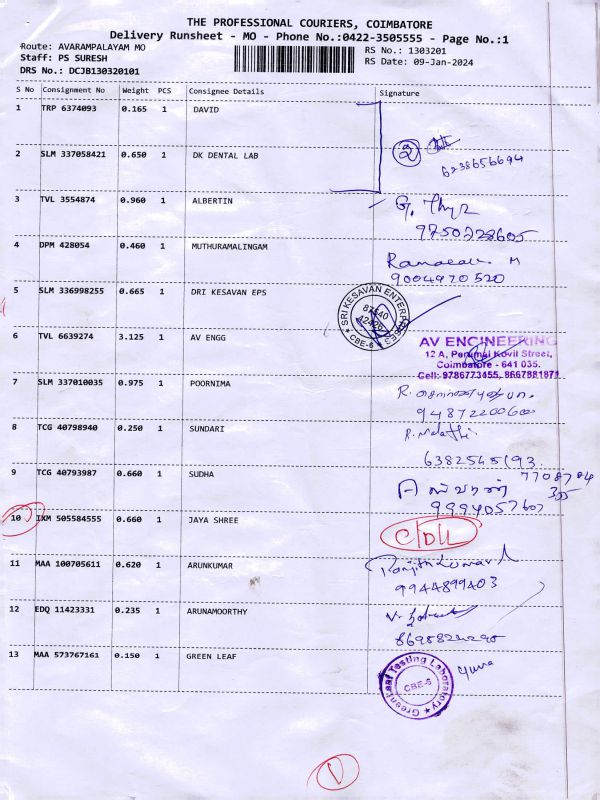 THE PROFESSIONAL COURIERS, COIMBATORE
Delivery Runsheet - MO - Phone No.:0422-3505555 - Page No.:1
Route: AVARAMPALAYAM MO
RS No.: 1303201
Staff: PS SURESH
RS Date: 09-Jan-2024
DRS No.: DCJB130320101
S No Consignment No Weight PCS Consignee Details Signature
1 TRP 6374093 0.165 1 DAVID
2
6238656694
2 SLM 337058421 0.650 1 DK DENTAL LAB
3 TVL 3554874 0.960 1 ALBERTIN
9750728605
4 DPM 428054 0.460 1 MUTHURAMALINGAM
M
9004970520
5 SLM 336998255 0.665 1 DRI KESAVAN EPS
SRI KESAVAN ENTERPRISES
CBE-6
6 TVL 6639274 3.125 1 AV ENGG
AV ENGINEERING
12 A, Perumal Kovil Street,
Coimbatore - 641 035.
Cell: 9786773455, 8667881871
7 SLM 337010035 0.975 1 POORNIMA
8 TCG 40798940 0.250 1 SUNDARI
R. Malathi
6382545193
9 TCG 40793987 0.660 1 SUDHA
7708784
9994057607
10 IXM 505584555 0.660 1 JAYA SHREE
C/DL
11 MAA 100705611 0.620 1 ARUNKUMAR
Ranjith Kumar
9944899403
12 EDQ 11423331 0.235 1 ARUNAMOORTHY
13 MAA 573767161 0.150 1 GREEN LEAF
Greenleaf Testing Laboratory
CBE-6
yuva